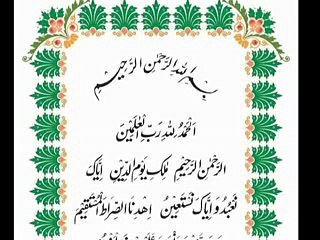 بسم الله الرحمن الرحیم
اَلْحَمْدُ لِلّٰهِ رَبِّ الْعٰلَمِیْنَ
الرَّحْمٰنِ الرَّحِیْمِ مٰلِكِ یَوْمِ الدِّیْنِ اِیَّاكَ
نَعْبُدُ وَ اِیَّاكَ نَسْتَعِیْنُ اِهْدِنَا الصِّرَاطَ الْمُسْتَقِیْمَ